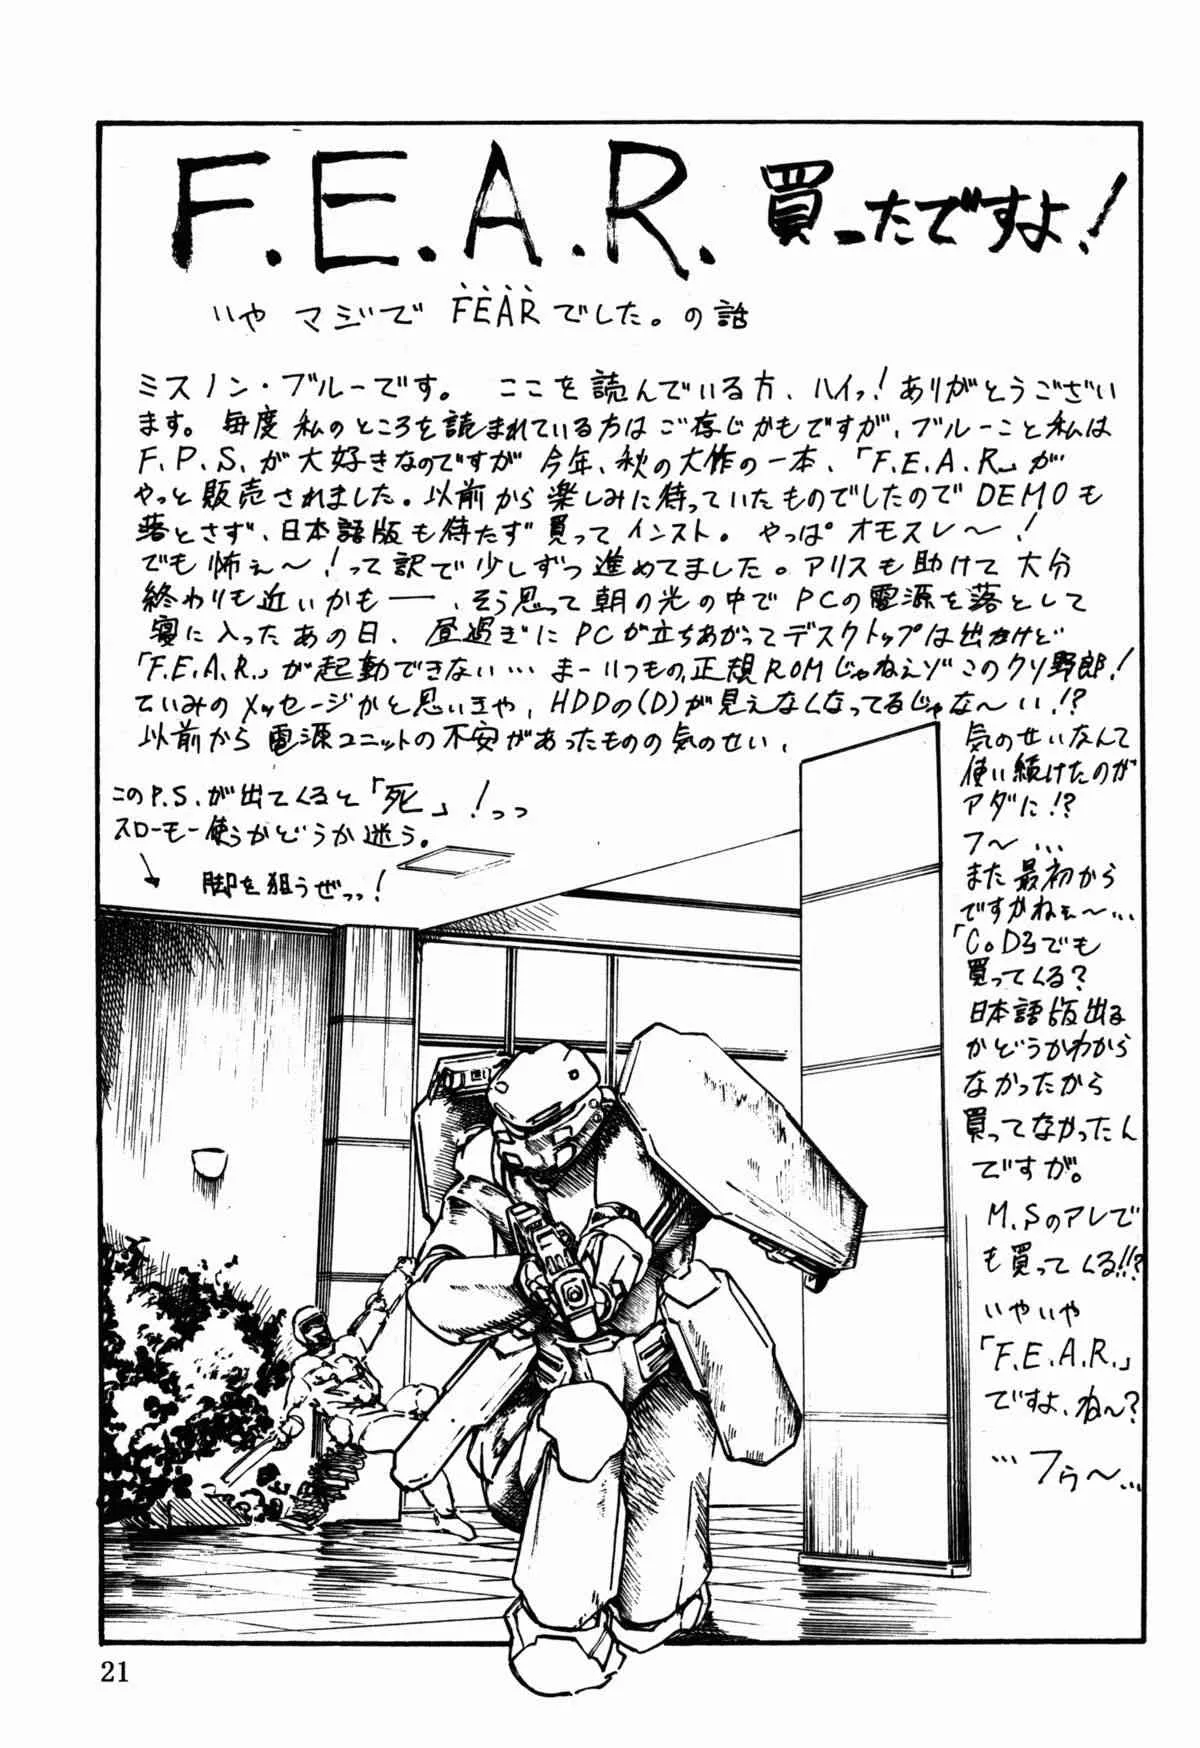 F.E.A.R. 買ったですよ!
いや マジで FEARでした。の話
ミスノン・ブルーです。 ここを読んでいる方、ハイッ!ありがとうござい
ます。毎度 私のところを読まれている方はご存じかもですが、ブルーこと私は
F.P.S.が大好きなのですが 今年、秋の大作の一本、「F.E.A.R」が
やっと販売されました。以前から楽しみに待っていたものでしたのでDEMOも
落とさず、日本語版も待たず買ってインスト。やっぱオモスレ〜!
でも怖ぇ〜!って訳で少しずつ進めてました。アリスも助けて大分
終わりも近いかも――、そう思って朝の光の中でPCの電源を落として
寝に入ったあの日、昼過ぎにPCが立ちあがってデスクトップは出かけど
「F.E.A.R.」が起動できない… まーいつもの、正規ROMじゃねぇゾこのクソ野郎!
ていみのメッセージかと思いきや、HDDの(D)が見えなくなってるじゃな〜い!?
以前から電源ユニットの不安があったものの気のせい、
気のせいなんて
使い続けたのが
アダに!?
フ〜…
また最初から
ですかねぇ〜…
「CoD3でも
買ってくる?
日本語版出る
かどうかわから
なかったから
買ってなかったん
ですが。
M.Sのアレで
も買ってくる!!?
いやいや
「F.E.A.R.」
ですよ、ね〜?
…フゥ〜…
このP.S.が出てくると「死」!っっ
スローモー使うかどうか迷う。
脚を狙うぜっっ!
21